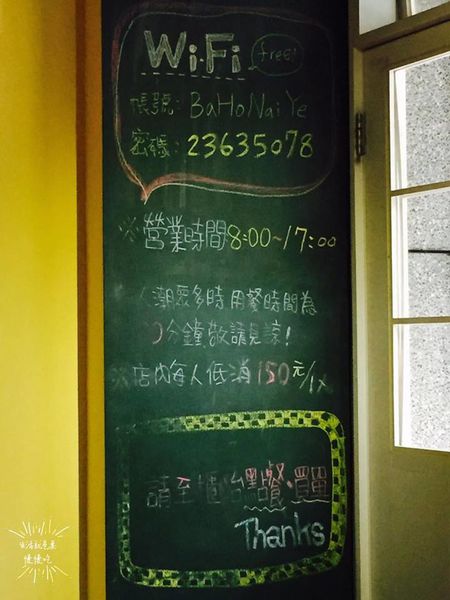 WiFi free!
帳號: BaHoNaiYe
密碼: 23635078
※營業時間8:00~17:00
人潮眾多時用餐時間為
0分鐘敬請見諒!
※店內每人低消150元/1人
請至櫃台點餐、買單
Thanks